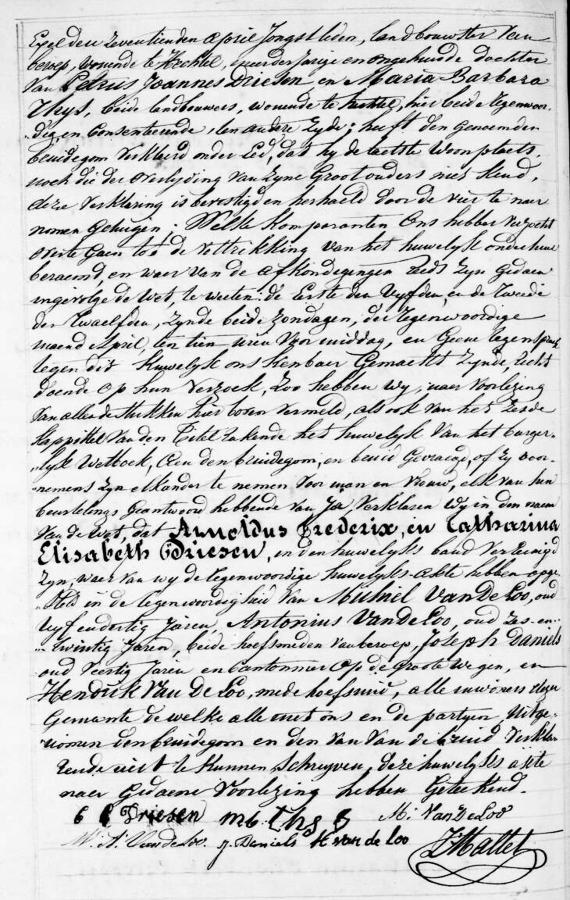 Exel den zeventienden April Jongstleden, landbouwster van
beroep, wonende te Hechtel, meerderjarige en ongehuude dochter
van Petrus Joannes Driesen en Maria Barbara
Thys, beide landbouwers, wonende te hechtel, hier beide tegenwoor-
dig en Consenteerende ten andre zyde; heeft den genoemden
bruidegom verklaerd onder Eed, dat hy de laetste woonplaets,
noch die der overlyding van zyne Grootouders niet kend,
deze verklaring is bevestigd en herhaeld door de vier te naer
nomen getuigen; Welke komparanten Ons hebben verzocht
overtegaen tot de voltrekking van het huwelyk onder hun
beraemd, en waer van de afkondegingen reeds zyn gedaen
ingevolge de Wet, te weeten: de Eerste den Vyfden, en de Tweede
den Twaelfden, zynde beide zondagen, der tegenwoordige
maend April, ten tien uren voormiddag, en Geene tegenspraek
tegen dit huwelyk ons kenbaer Gemaekt zynde, recht
doende op hun verzoek, Zoo hebben wy, naer voorlezing
van alle de stukken hier boven vermeld, als ook van het zesde
kappittel van den Titel rakende het huwelyk van het burger-
lyk Wetboek, Aen den bruidegom, en bruid Gevraegd, of zy voor-
nemens zyn elkander te nemen voor man en vrouw, elk van hun
beurtelings geantwoord hebbende van Ja, Verklaren Wy in den naem
van de Wet, dat Arnoldus Frederix, en Catharina
Elisabeth Driesen, en den huwelyks band Vereenigd
zyn, waer van wy de tegenwoordige huwelyks-akte hebben opge-
steld in de tegenwoordigheid van Michiel Van De Loo, oud
vyf en dertig Jaren, Antonius Van De Loo, oud zes-en-
twintig Jaren, beide hoefsmeden van beroep, Joseph Daniels
oud veertig Jaren en Cantonnier op de groote wegen, en
Hendrik Van De Loo, mede hoefsmid, alle inwoners dezer
Gemeente de welke alle met ons en de partyen, uitge-
nomen den bruidegom en den van van de bruid Verkla
rende niet te kunnen Schryven, deze huwelyks akte
naer Gedaene Voorlezing hebben Geteekend.
C E Driesen M b. thys M: Van De Loo
A: Van de loo. J. Daniels H van de loo J Mallet